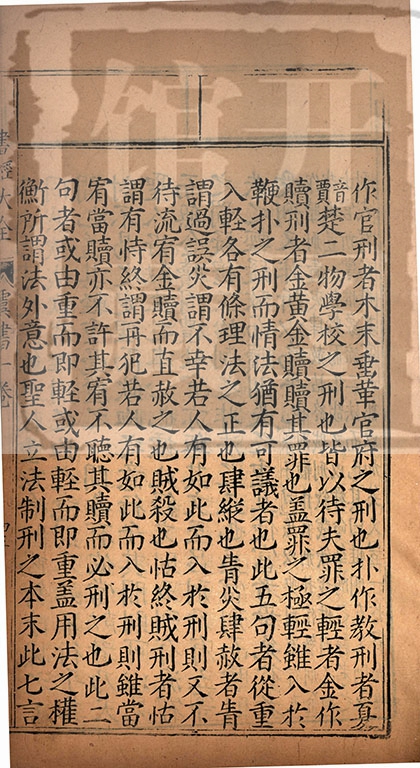 作官刑者木末垂革官府之刑也扑作教刑者夏
音賈楚二物學校之刑也皆以待夫罪之輕者金作
贖刑者金黃金贖贖其罪也盖罪之極輕雖入於
鞭扑之刑而情法猶有可議者也此五句者從重
入輕各有條理法之正也肆縱也眚災肆赦者眚
謂過誤災謂不幸若人有如此而入於刑則又不
待流宥金贖而直赦之也賊殺也怙終賊刑者怙
謂有恃終謂再犯若人有如此而入於刑則雖當
宥當贖亦不許其宥不聽其贖而必刑之也此二
句者或由重而即輕或由輕而即重盖用法之權
衡所謂法外意也聖人立法制刑之本末此七言
書經大全 虞書一卷